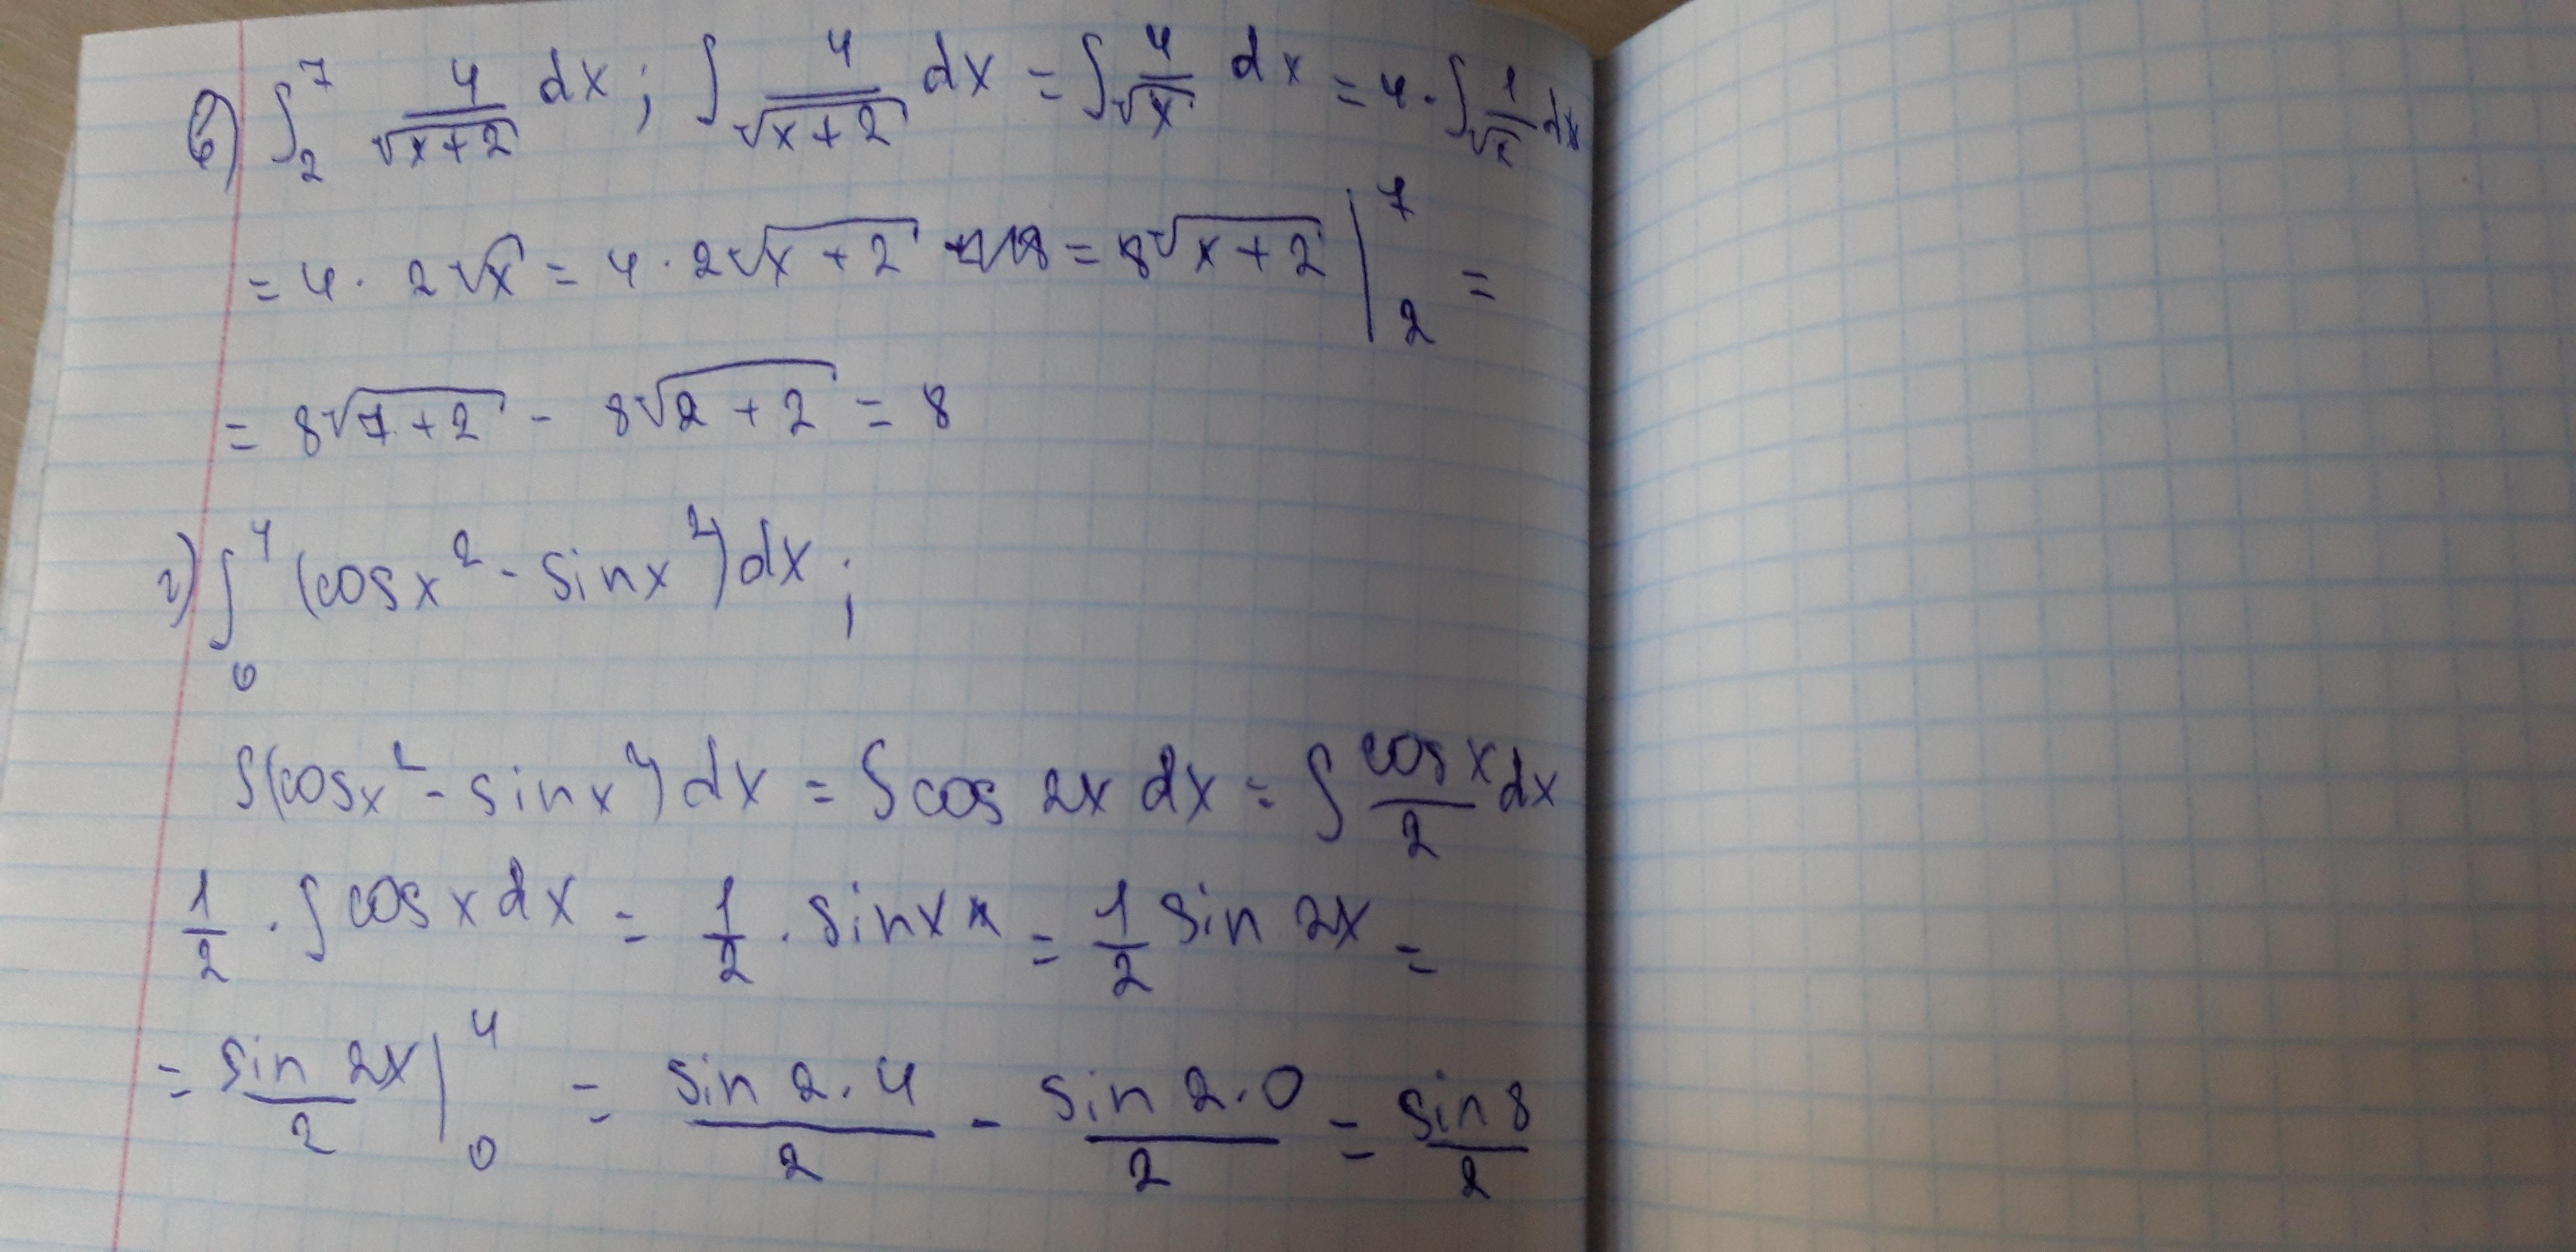 в) ∫₂⁷ 4/√(x+2) dx; ∫ 4/√(x+2) dx = ∫ 4/√x dx = 4 · ∫ 1/√x dx
= 4 · 2√x = 4 · 2√(x+2) = 8√(x+2) |₂⁷ =
= 8√(7+2) - 8√(2+2) = 8
г) ∫₀⁴ (cosx² - sinx²)dx;
∫(cosx² - sinx²)dx = ∫cos 2x dx = ∫ cosx/2 dx
1/2 · ∫ cosx dx = 1/2 · sinx = 1/2 sin 2x =
= sin 2x/2 |₀⁴ = sin 2·4/2 - sin 2·0/2 = sin 8/2